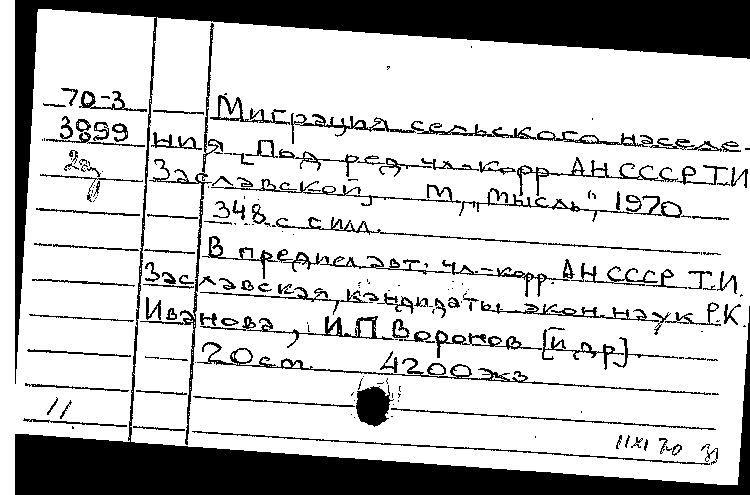 70-3
Миграция сельского населе-
3899
ния [Под ред. чл-корр. АН СССР Т.И.
2 эк
Заславской], М., „Мысль“, 1970
348 с с илл.
В предисл авт.: чл-корр. АН СССР Т.И.
Заславская, кандидаты экон. наук Р.К.
Иванова, И.П. Воронов [и др].
20 cm. 4200 экз
11
11 XI 70